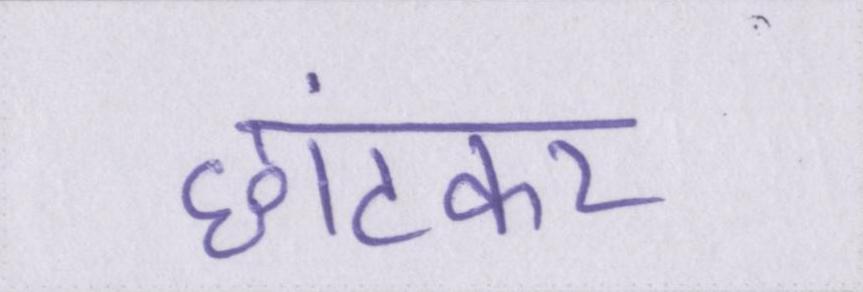 छांटकर